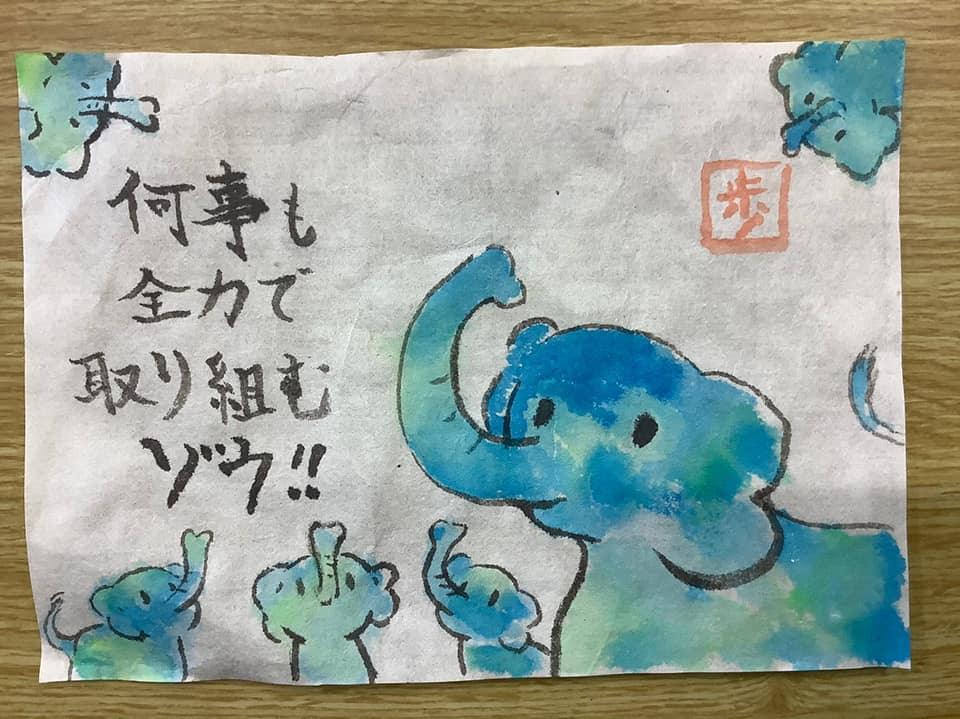 何事も
全力で
取り組む
ゾウ!!
歩